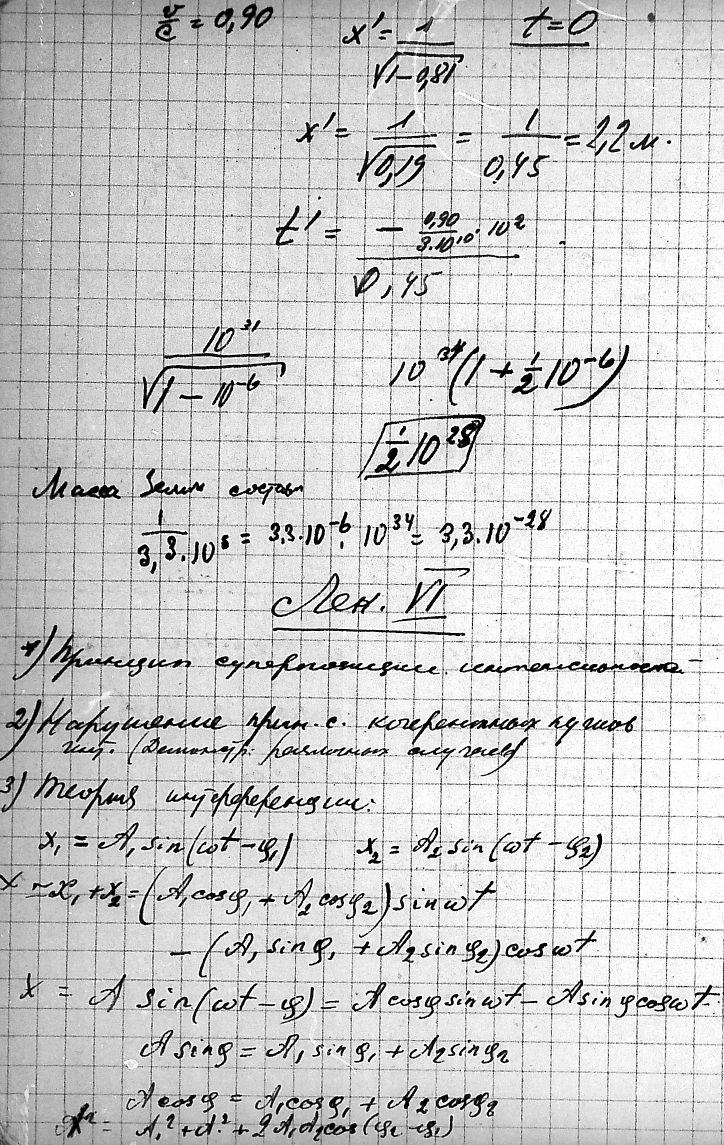 v/c = 0,90
x' = 1/√(1-0,81) t=0
x' = 1/√0,19 = 1/0,45 = 2,2 м.
t' = - 0,90/3.10¹⁰ . 10² / √0,45
10³¹/√(1 - 10⁻⁶) 10³⁴(1 + 1/2 10⁻⁶)
1/2 10²⁸
Масса Земли состав
1/3,3.10⁵ = 3,3.10⁻⁶ . 10³⁴ = 3,3.10⁻²⁸
Лек. VI
1) Принцип суперпозиции интенсивностей
2) Нарушение прин. с. когерентных пучков
инт. (Демонстр. различных случаев)
3) Теория интерференции:
x₁ = A₁ sin(ωt - φ₁) x₂ = A₂ sin(ωt - φ₂)
x = x₁ + x₂ = (A₁cosφ₁ + A₂cosφ₂) sin ωt
- (A₁ sin φ₁ + A₂ sin φ₂) cos ωt
x = A sin(ωt - φ) = A cosφ sin ωt - A sin φ cos ωt
A sin φ = A₁ sin φ₁ + A₂ sin φ₂
A cos φ = A₁cosφ₁ + A₂ cosφ₂
A² = A₁² + A₂² + 2A₁A₂cos(φ₂ - φ₁)